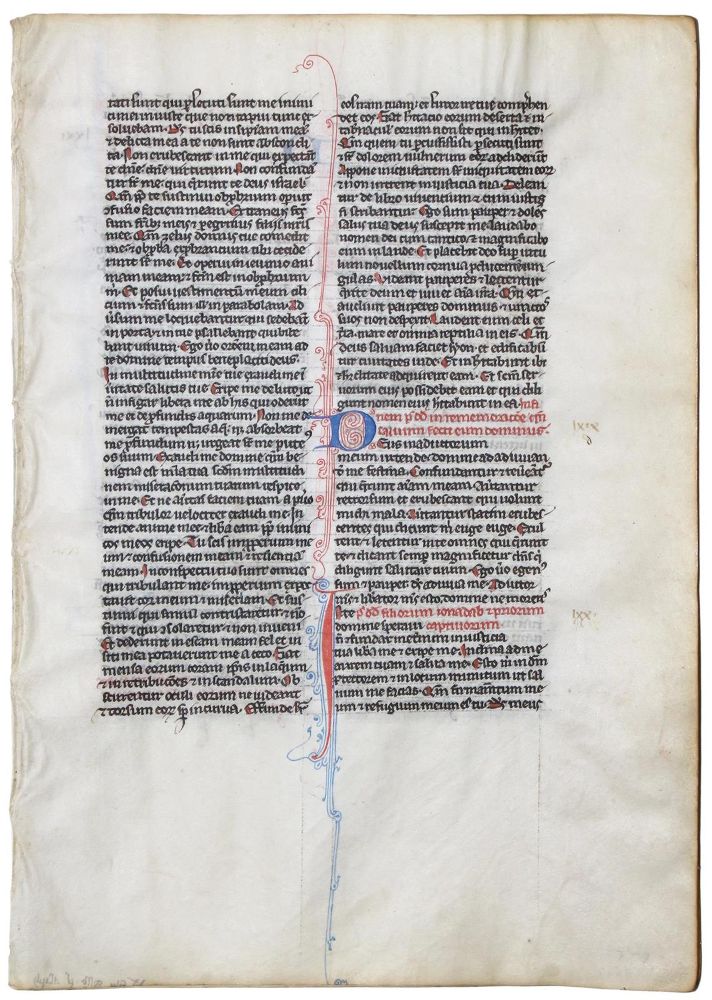 tati sunt qui psecuti sunt me inimi
ci mei iniuste que non rapui tunc ex
solvebam. Ds tu scis insipiam meā
et delicta mea a te non sunt abscondi
ta. Non erubescant in me qui expectāt
te dn̄e dn̄e virtutum. Non confunda
tur sr̄ me qui q̄runt te deus israel
Qm̄ pp̄ te sustinui obprbrium opuit
confusio faciem meam. Extraneus fcs̄
sum frīb; meis et pegrinus filiis mr̄is
mee. Qm̄ zelus domus tue comedit
me et obprbria exprbrantium tibi cecide
runt sr̄ me. Et operui in ieiunio ani
mam meam et fcm̄ est in obprbrium
m̄. Et posui vestimentū meum cili
cium et fcs̄ sum ill' in parabolam. Ad
usum me loquebantur qui sedebāt
in porta et in me psallebant qui bibe
bant vinum. Ego ū̄o or̄onem meam ad
te domine tempus beneplaciti deus
In multitudine mīe tue exaudi me ī
ūitate salutis tue. Eripe me de luto ut
n̄ infigar libera me ab his qui oderūt
me et de pfundis aquarum. Non me de
mergat tempestas aq̄ n; absorbeat
me pfundum n; urgeat sr̄ me pute
os suum. Exaudi me domine qm̄ be
nigna est mīa tua scdm̄ multitudi
nem miserac̄onum tuarum respice
in me. Et ne avtas faciem tuam a puo
qm̄ tribulor velociter exaudi me. In
tende anime mee et liba eam pp̄ inimi
cos meos eripe. Tu scis inpperium me
um et confusionem meam et reverencia
meam. In conspectu tuo sunt omnes
qui tribulant me inpperium expec
tavit cor meum et miseriam. Et sus
tinui qui simul contristaretur et nō
fuit et qui gsolaretur et non inveni
Et dederunt in escam meam fel et in
siti mea potaverunt me aceto. Fiat
mensa eorum coram ipīs in laqueū
et in retribuc̄ones et in scandalum. Ob
scurentur oculi eorum ne videant
et dorsum eor̄ sp̄ incurva. Effunde sr̄
eos iram tuam et furor ire tue comphen
dat eos. Fiat hītacio eorum deserta et in
tabnaculis eorum non sit qui inhītet.
Qm̄ quem tu pcussisti psecuti sunt
et sr̄ dolorem vulnerum eor̄ addiderūt
Appone iniquitatem sr̄ iniquitatem eor̄
et non intrent in iusticia tua. Delean
tur de libro viventium et cum iustis
n̄ scribantur. Ego sum pauper et dolēs
salus tua deus suscepit me. Laudabo
nomen dei cum cantico et magnificabo
eum in laude. Et placebit deo sup̄ vitu
lum novellum cornua pducentem et un
gulas. Videant pauperes et letentur
q̄rite deum et vivet aīa vr̄a. Qm̄ ex
audivit pauperes dominus et vinctos
suos non despexit. Laudent eum celi et
tr̄a mare et omnia reptilia in eis. Qm̄
deus salvam faciet syon et edificabū
tur civitates iude. Et inhītabunt ibi
et hr̄editate adquirent eam. Et semen ser
vorum eius possidebit eam et qui dili
gunt nomen eius hītabunt in ea. In fi
nem ps̄ dd in rememorac̄oe efn̄
lxix
quium fecit eum dominus.
Deus in adiutorium
meum intende domine ad adiuvan
dū me festina. Confundantur et reveāt
qm̄ q̄runt aīam meam. Avtantur
retrorsum et erubescant qui volunt
michi mala. Avtantur statim erubes
centes qui dicunt m̄ euge euge. Exul
tent et letentur in te omnes qui q̄runt
te et dicant semp magnificetur dn̄s q̄
diligunt salutare tuum. Ego ū̄o egen
sum et paup; ds adiuva me. Adiutor
m̄s et libator m̄s es tu domine ne moreris
In te ps̄ dd filiorum ionadab et priorum
lxx
domine speravi captivorum
n̄ confundar in eternum in iusticia
tua liba me et eripe me. Inclina ad me
aurem tuam et salva me. Esto m̄ in dm̄
ptectorem et in locum munitum ut sal
vum me facias. Qm̄ firmamentum me
um et refugium meum es tu. Ds meus